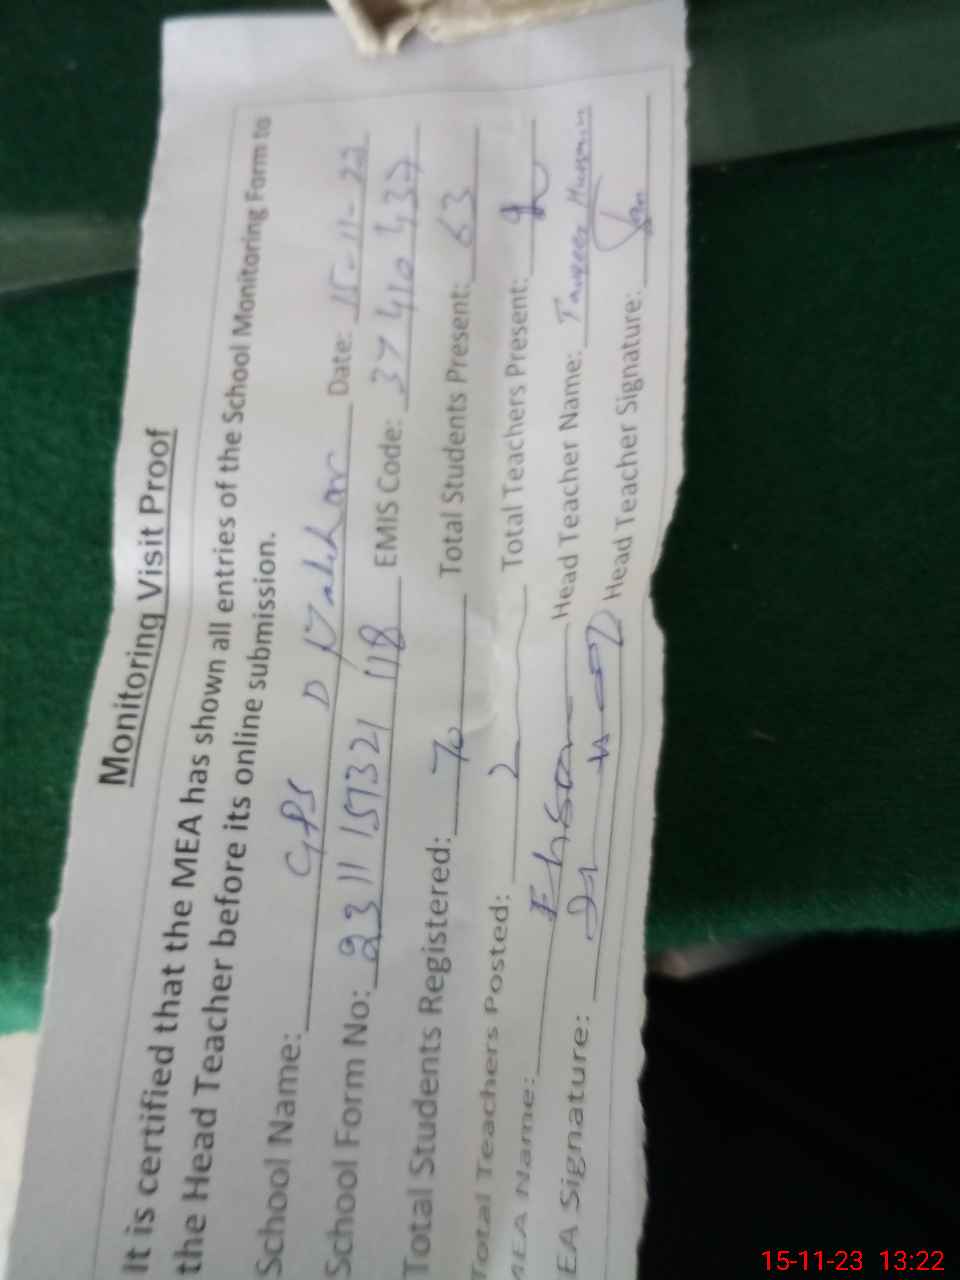 Monitoring Visit Proof
It is certified that the MEA has shown all entries of the School Monitoring Form to
the Head Teacher before its online submission.
School Name: GPS D Date: 15-11-23
School Form No: 2311 157321 118 EMIS Code: 37410437
Total Students Registered: 70 Total Students Present: 63
Total Teachers Posted: 2 Total Teachers Present:
MEA Name: Ehsan Head Teacher Name: Tanveer Hussain
EA Signature: Head Teacher Signature:
15-11-23 13:22